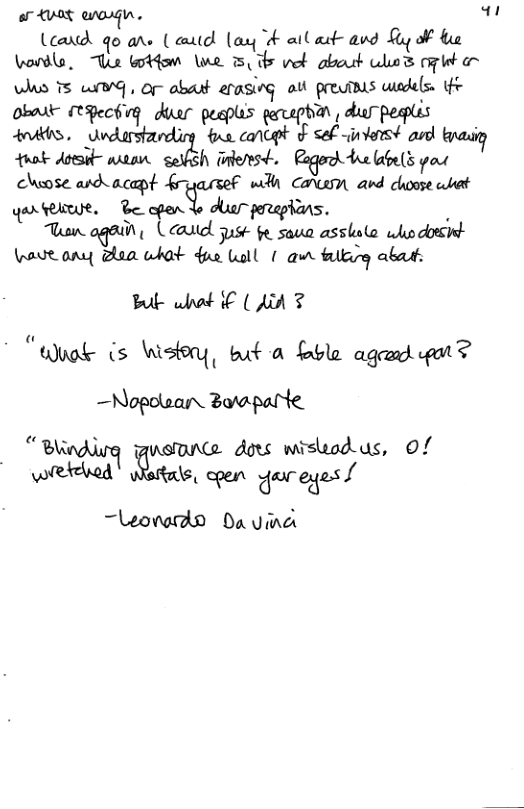 41
or that enough.
I could go on. I could lay it all out and fly off the
handle. The bottom line is, its not about who is right or
who is wrong, or about erasing all previous models. It's
about respecting other people's perception, other people's
truths. Understanding the concept of self-interest and knowing
that doesn't mean selfish interest. Regard the labels you
choose and accept for yourself with concern and choose what
you believe. Be open to other perceptions.
Then again, I could just be some asshole who doesn't
have any idea what the hell I am talking about.
But what if I did?
"What is history, but a fable agreed upon?
-Napolean Bonaparte
"Blinding ignorance does mislead us. O!
wretched mortals, open your eyes!
-Leonardo Da Vinci